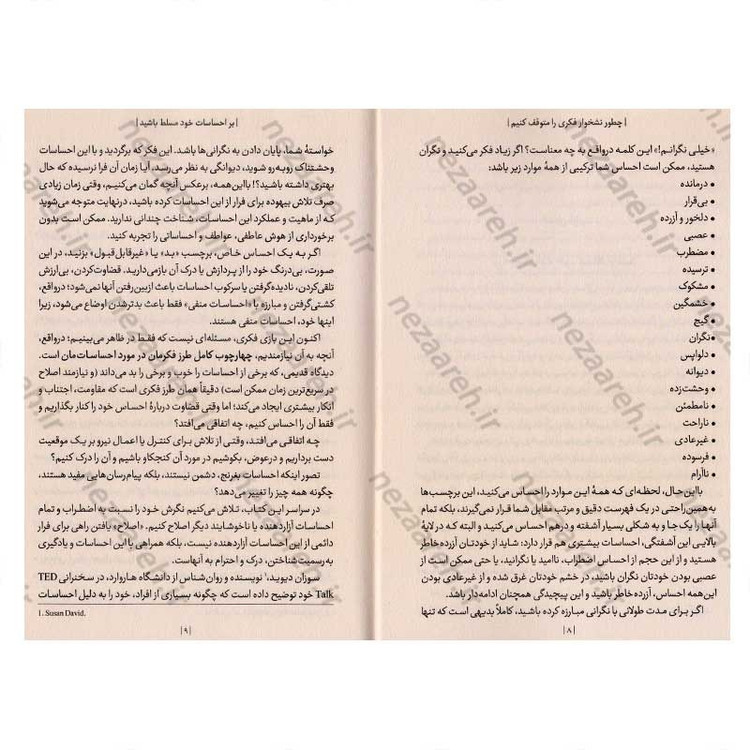 | چطور نشخوار فکری را متوقف کنیم |
«خیلی نگرانم!» این کلمه درواقع به چه معناست؟ اگر زیاد فکر می‌کنید و نگران
هستید، ممکن است احساس شما ترکیبی از همهٔ موارد زیر باشد:
• درمانده
• بی‌قرار
• دلخور و آزرده
• عصبی
• مضطرب
• ترسیده
• مشکوک
• خشمگین
• گیج
• نگران
• دلواپس
• دیوانه
• وحشت‌زده
• نامطمئن
• ناراحت
• غیرعادی
• فرسوده
• ناآرام
بااین‌حال، لحظه‌ای که همهٔ این موارد را احساس می‌کنید، این برچسب‌ها
به‌همین‌راحتی در یک فهرست دقیق و مرتب مقابل شما قرار نمی‌گیرند، بلکه تمام
آنها را یک جا و به شکلی بسیار آشفته و درهم احساس می‌کنید و البته که در لایهٔ
بالایی این آشفتگی، احساسات بیشتری هم قرار دارد: شاید از خودتان آزرده‌خاطر
هستید و از این حجم از احساس اضطراب، ناامید یا نگرانید، یا حتی ممکن است از
عصبی بودن خودتان نگران باشید، در خشم خودتان غرق شده و از غیرعادی بودن
این‌همه احساس، آزرده خاطر باشید و این پیچیدگی همچنان ادامه‌دار باشد.
اگر برای مدت طولانی با نگرانی مبارزه کرده باشید، کاملاً بدیهی است که تنها
| ۸ |
| بر احساسات خود مسلط باشید |
خواستهٔ شما، پایان دادن به نگرانی‌ها باشد. این فکر که برگردید و با این احساسات
وحشتناک روبه‌رو شوید، دیوانگی به نظر می‌رسد. آیا زمان آن فرا نرسیده که حال
بهتری داشته باشید؟! بااین‌همه، برعکس آنچه گمان می‌کنیم، وقتی زمان زیادی
صرف تلاش بیهوده برای فرار از این احساسات کرده باشید، درنهایت متوجه می‌شوید
که از ماهیت و عملکرد این احساسات، شناخت چندانی ندارید. ممکن است بدون
برخورداری از هوش عاطفی، عواطف و احساساتی را تجربه کنید.
اگر به یک احساس خاص، برچسب «بد» یا «غیرقابل‌قبول» بزنید، در این
صورت، بی‌درنگ خود را از پردازش یا درک آن بازمی‌دارید. قضاوت‌کردن، بی‌ارزش
تلقی‌کردن، نادیده‌گرفتن یا سرکوب احساسات باعث ازبین‌رفتن آنها نمی‌شود؛ درواقع،
کشتی‌گرفتن و مبارزه با «احساسات منفی» فقط باعث بدترشدن اوضاع می‌شود، زیرا
اینها خود، احساسات منفی هستند.
اکنون این بازی فکری، مسئله‌ای نیست که فقط در ظاهر می‌بینیم؛ درواقع،
آنچه به آن نیازمندیم، چهارچوب کامل طرز فکرمان در مورد احساسات‌مان است.
دیدگاه قدیمی، که برخی از احساسات را خوب و برخی را بد می‌داند (و نیازمند اصلاح
در سریع‌ترین زمان ممکن است) دقیقاً همان طرز فکری است که مقاومت، اجتناب و
انکار بیشتری ایجاد می‌کند؛ اما وقتی قضاوت دربارهٔ احساس خود را کنار بگذاریم و
فقط آن را احساس کنیم، چه اتفاقی می‌افتد؟
چه اتفاقی می‌افتد، وقتی از تلاش برای کنترل یا اعمال نیرو بر یک موقعیت
دست برداریم و درعوض، بکوشیم در مورد آن کنجکاو باشیم و آن را درک کنیم؟
تصور اینکه احساسات بغرنج، دشمن نیستند، بلکه پیام‌رسان‌هایی مفید هستند،
چگونه همه چیز را تغییر می‌دهد؟
در سراسر این کتاب، تلاش می‌کنیم نگرش خود را نسبت به اضطراب و تمام
احساسات آزاردهنده یا ناخوشایند دیگر اصلاح کنیم. «اصلاح» یافتن راهی برای فرار
دائمی از این احساسات آزاردهنده نیست، بلکه همراهی با این احساسات و یادگیری
به‌رسمیت‌شناختن، درک و احترام به آنهاست.
سوزان دیوید،۱ نویسنده و روان‌شناس از دانشگاه هاروارد، در سخنرانی TED
Talk خود توضیح داده است که چگونه بسیاری از افراد، خود را به دلیل احساسات
1. Susan David.
| ۹ |
nezaareh.ir
nezaareh.ir
nezaareh.ir
nezaareh.ir
nezaareh.ir
nezaareh.ir